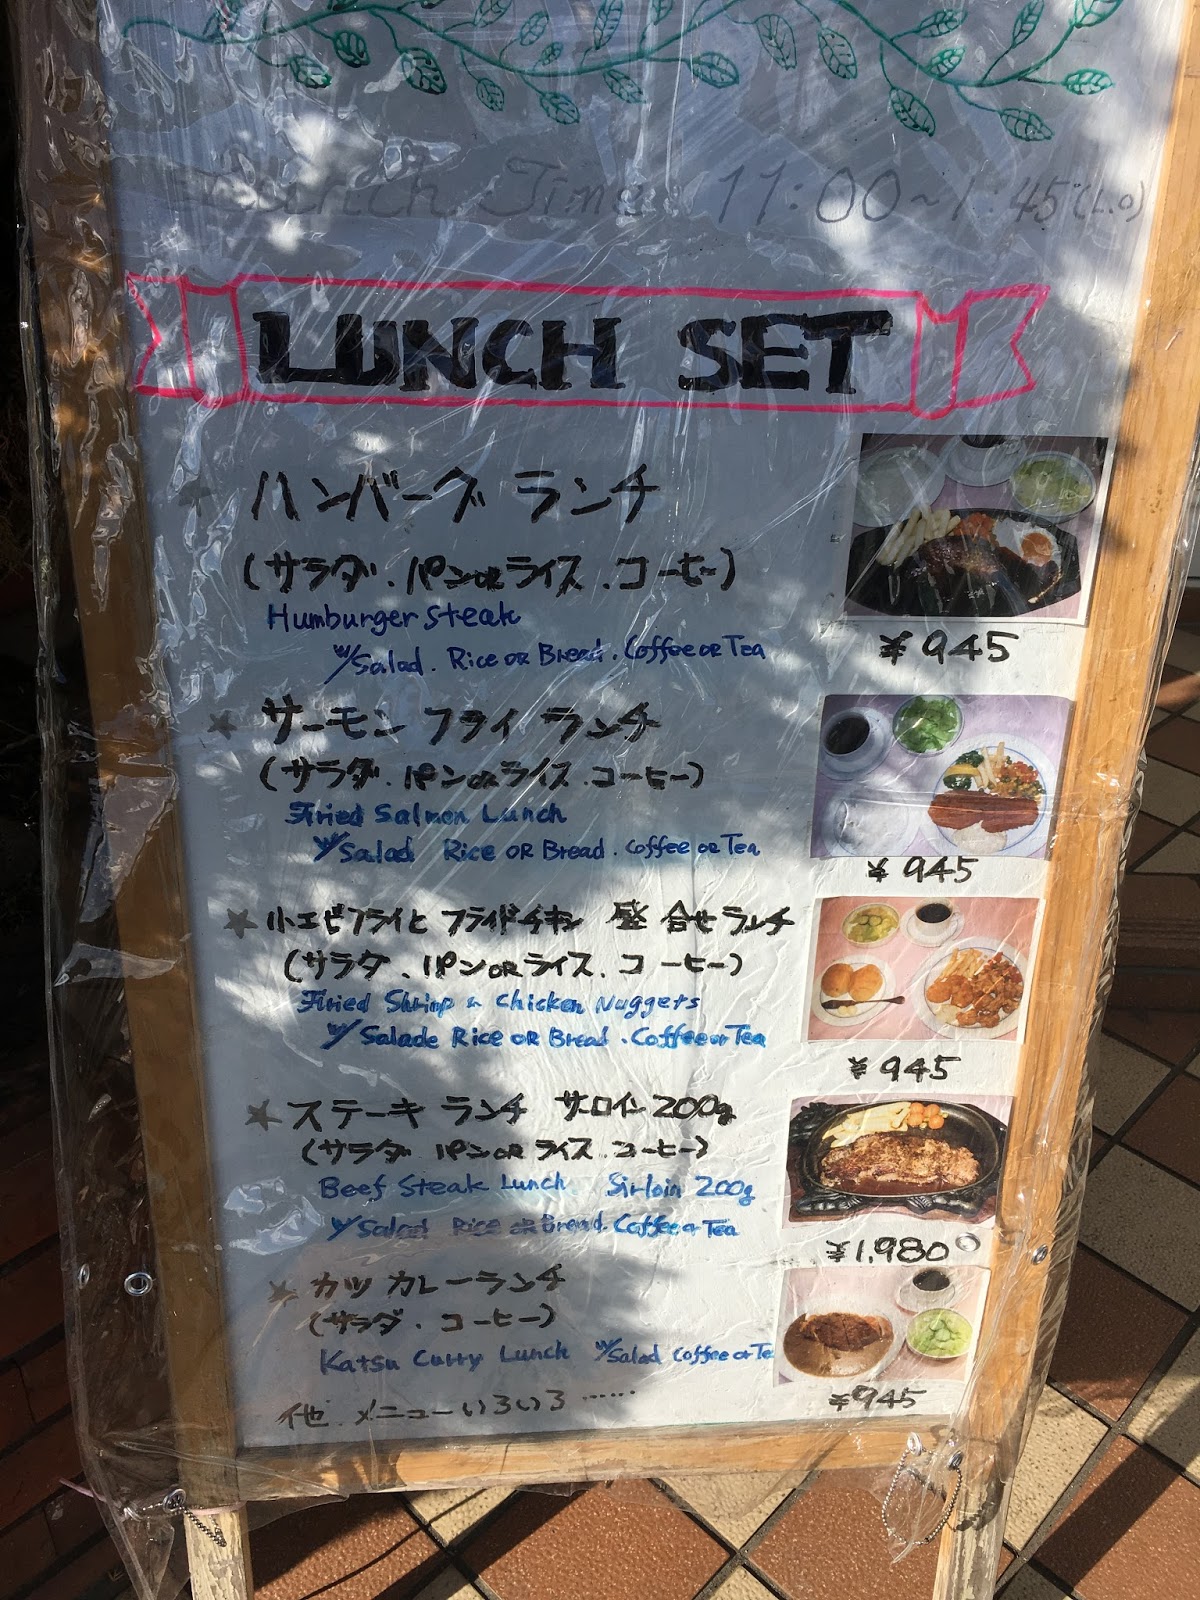 Lunch Time 11:00~1:45(L.O)
LUNCH SET
ハンバーグ ランチ
(サラダ.パンorライス.コーヒー)
Humburger Steak
w/Salad. Rice OR Bread. Coffee OR Tea
¥945
★サーモン フライ ランチ
(サラダ.パンorライス.コーヒー)
Fried Salmon Lunch
w/Salad Rice OR Bread. Coffee or Tea
¥945
★小エビフライと フライドチキン 盛 合せ ランチ
(サラダ.パンORライス.コーヒー)
Fried Shrinp & Chicken Nuggets
w/Salade Rice OR Bread. Coffee or Tea
¥945
★ステーキ ランチ サーロイン200g
(サラダ パンORライス.コーヒー)
Beef Steak Lunch Sirloin 200g
w/Salad Rice OR Bread. Coffee or Tea
¥1,980
★カツ カレーランチ
(サラダ.コーヒー)
Katsu Curry Lunch w/Salad Coffee or Te
¥945
他 メニューいろいろ……